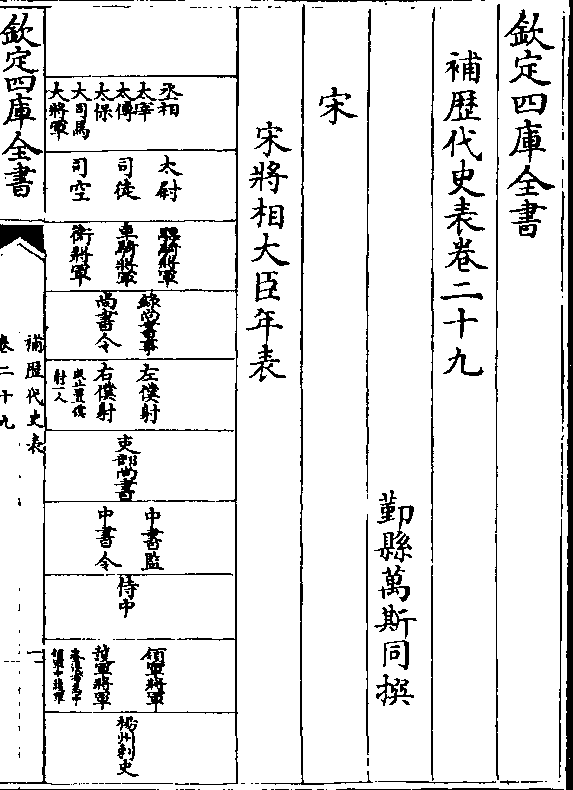 欽定四庫全書
補歴代史表卷二十九
鄞縣萬斯同撰
宋
宋將相大臣年表
丞相
太宰
太傅
太保
大司馬
大將軍
太尉
司徒
司空
驃騎將軍
車騎將軍
衛將軍
錄尚書事
尚書令
左僕射
右僕射
或止置僕
射一人
吏部尚書
中書監
中書令
侍中
領軍將軍
護軍將軍
資淺者為中
領軍中護軍
揚州刺史
欽定四庫全書
補歴代史表
卷二十九